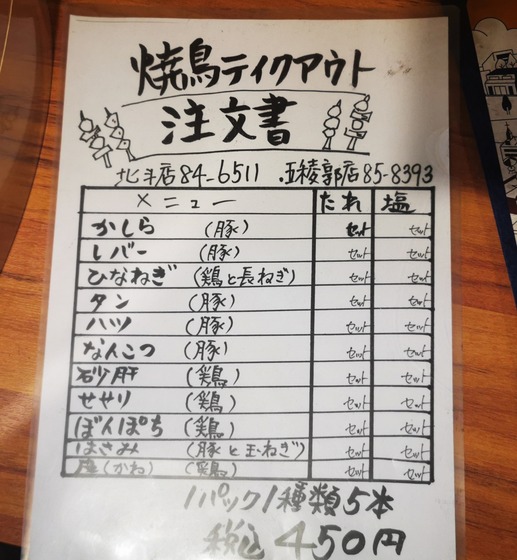 焼鳥ティクアウト
注文書
北斗店84-6511 .五稜郭店85-8393
メニュー たれ 塩
かしら (豚) セット セット
レバー (豚) セット セット
ひなねぎ (鶏と長ねぎ) セット セット
タン (豚) セット セット
ハツ (豚) セット セット
なんこつ (豚) セット セット
砂肝 (鶏) セット セット
せせり (鶏) セット セット
ぼんぽち (鶏) セット セット
はさみ (豚と玉ねぎ) セット セット
(かわ) (鶏) セット セット
1パック1種類5本
税込450円